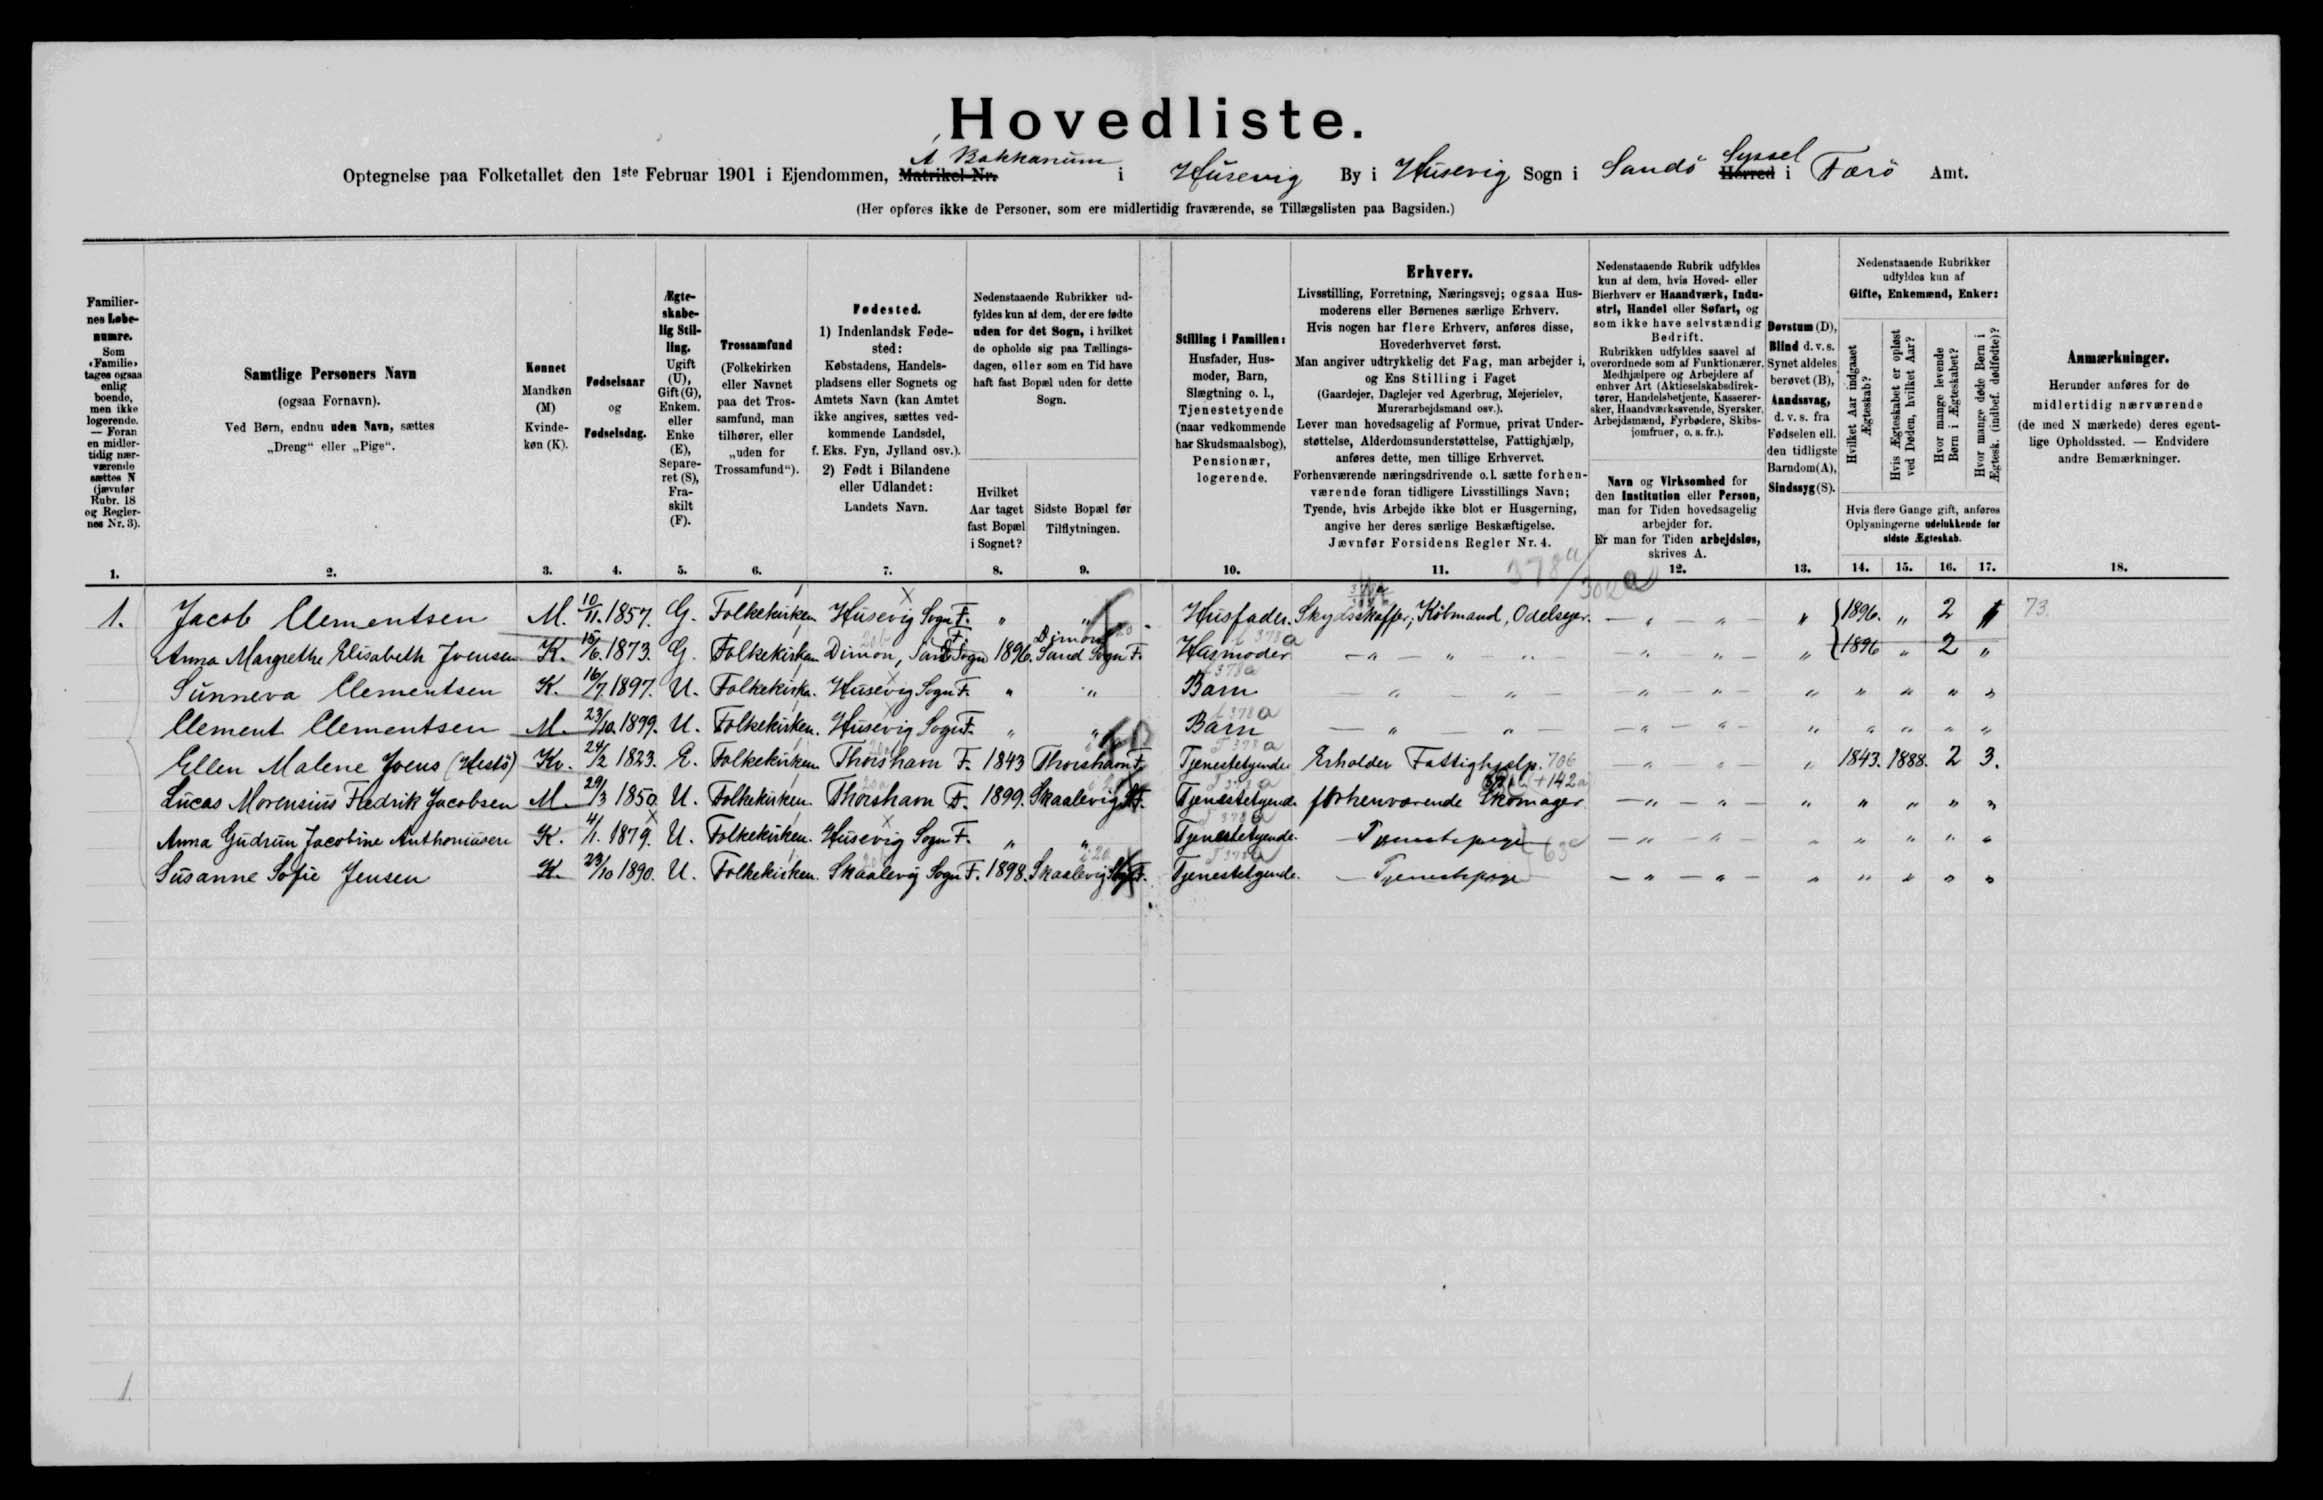 Hovedliste.
Á Bakkanum Syssel
Optegnelse paa Folketallet den 1ste Februar 1901 i Ejendommen, Matrikel-Nr. i Húsevig By i Húsevig Sogn i Sandö Herred i Færö Amt.
(Her opføres ikke de Personer, som ere midlertidig fraværende, se Tillægslisten paa Bagsiden.)
Familiernes Løbenumre. Som «Familie» tages ogsaa enlig boende, men ikke logerende. — Foran en midlertidig nærværende sættes N (jævnfør Rubr. 18 og Reglernes Nr. 3).
Samtlige Personers Navn
(ogsaa Fornavn).
Ved Børn, endnu uden Navn, sættes
„Dreng“ eller „Pige“.
Kønnet
Mandkøn (M)
Kvindekøn (K).
Fødselsaar
og
Fødselsdag.
Ægteskabelig Stilling.
Ugift (U), Gift (G), Enkem. eller Enke (E), Separeret (S), Fraskilt (F).
Trossamfund
(Folkekirken eller Navnet paa det Trossamfund, man tilhører, eller „uden for Trossamfund“).
Fødested.
1) Indenlandsk Fødested:
Købstadens, Handelspladsens eller Sognets og Amtets Navn (kan Amtet ikke angives, sættes vedkommende Landsdel, f. Eks. Fyn, Jylland osv.).
2) Født i Bilandene eller Udlandet:
Landets Navn.
Nedenstaaende Rubrikker udfyldes kun af dem, der ere fødte uden for det Sogn, i hvilket de opholde sig paa Tællingsdagen, eller som en Tid have haft fast Bopæl uden for dette Sogn.
Hvilket Aar taget fast Bopæl i Sognet?
Sidste Bopæl før Tilflytningen.
Stilling i Familien:
Husfader, Husmoder, Barn, Slægtning o. l., Tjenestetyende (naar vedkommende har Skudsmaalsbog), Pensionær, logerende.
Erhverv.
Livsstilling, Forretning, Næringsvej; ogsaa Husmoderens eller Børnenes særlige Erhverv.
Hvis nogen har flere Erhverv, anføres disse, Hovederhvervet først.
Man angiver udtrykkelig det Fag, man arbejder i, og Ens Stilling i Faget
(Gaardejer, Daglejer ved Agerbrug, Mejerielev, Murerarbejdsmand osv.).
Lever man hovedsagelig af Formue, privat Understøttelse, Alderdomsunderstøttelse, Fattighjælp, anføres dette, men tillige Erhvervet.
Forhenværende næringsdrivende o. l. sætte forhenværende foran tidligere Livsstillings Navn;
Tyende, hvis Arbejde ikke blot er Husgerning, angive her deres særlige Beskæftigelse.
Jævnfør Forsidens Regler Nr. 4.
Nedenstaaende Rubrik udfyldes kun af dem, hvis Hoved- eller Bierhverv er Haandværk, Industri, Handel eller Søfart, og som ikke have selvstændig Bedrift.
Rubrikken udfyldes saavel af overordnede som af Funktionærer, Medhjælpere og Arbejdere af enhver Art (Aktieselskabsdirektører, Handelsbetjente, Kasserersker, Haandværkssvende, Syersker, Arbejdsmænd, Fyrbødere, Skibsjomfruer, o. s. fr.).
Navn og Virksomhed for den Institution eller Person, man for Tiden hovedsagelig arbejder for.
Er man for Tiden arbejdsløs, skrives A.
Døvstum (D), Blind d. v. s. Synet aldeles berøvet (B), Aandssvag, d. v. s. fra Fødselen ell. den tidligste Barndom (A), Sindssyg (S).
Nedenstaaende Rubrikker udfyldes kun af
Gifte, Enkemænd, Enker:
Hvilket Aar indgaaet Ægteskab?
Hvis Ægteskabet er opløst ved Døden, hvilket Aar?
Hvor mange levende Børn i Ægteskabet?
Hvor mange døde Børn i Ægtesk. (indbef. dødfødte)?
Hvis flere Gange gift, anføres Oplysningerne udelukkende for sidste Ægteskab.
Anmærkninger.
Herunder anføres for de midlertidig nærværende (de med N mærkede) deres egentlige Opholdssted. — Endvidere andre Bemærkninger.
1. 2. 3. 4. 5. 6. 7. 8. 9. 10. 11. 12. 13. 14. 15. 16. 17. 18.
378a/302a
1. Jacob Clementsen M. 10/11. 1857. G. Folkekirken Húsevig Sogn F. „ „ Húsfader. Skydsskaffer, Købmand, Odelsejer. — „ — „ — „ 1896. „ 2 73
Anna Margrethe Elisabeth Joensen K. 15/6. 1873. G. Folkekirken Dimon, Sand Sogn F. 1896. Dimon Sand Sogn F. Husmoder — „ — „ — „ — „ — „ — „ 1896 „ 2 „
Súnneva Clementsen K. 16/7. 1897. U. Folkekirken. Húsevig Sogn F. „ „ Barn — „ — „ — „ — „ — „ „ „ „ „
Clement Clementsen M. 23/10. 1899. U. Folkekirken. Húsevig Sogn F. „ „ Barn — „ — „ — „ — „ — „ „ „ „ „
Ellen Malene Joens (Hestö) Kv. 24/2 1823. E. Folkekirken Thorshavn F. 1843 Thorshavn F. Tjenestetyende Erholder Fattighjælp. 706 — „ — „ — „ 1843. 1888. 2 3.
Lúcas Morensiús Fredrik Jacobsen M. 29/3 1850. U. Folkekirken. Thorshavn F. 1899. Skaalevig F. Tjenestetyende. forhenværende Skomager — „ — „ — „ „ „ „ „
Anna Gúdrún Jacobine Anthoniúsen K. 4/1. 1879. U. Folkekirken. Húsevig Sogn F. „ „ Tjenestetyende. — Tjenestepige — „ — „ — „ „ „ „ „
Súsanne Sofie Jensen K. 23/10 1890. U. Folkekirken. Skaalevig Sogn F. 1898. Skaalevig Sogn F. Tjenestetyende. — Tjenestepige — „ — „ — „ „ „ „ „
1.